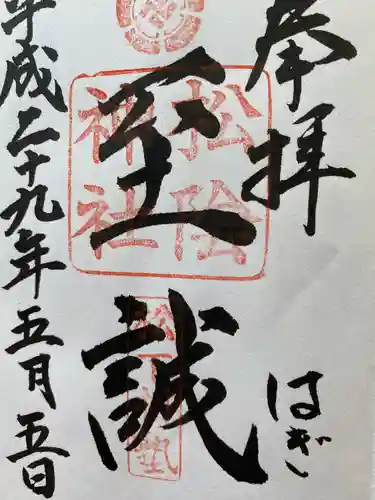 奉拝
はぎ
至誠
松陰
神社
松下村塾
平成二十九年五月五日